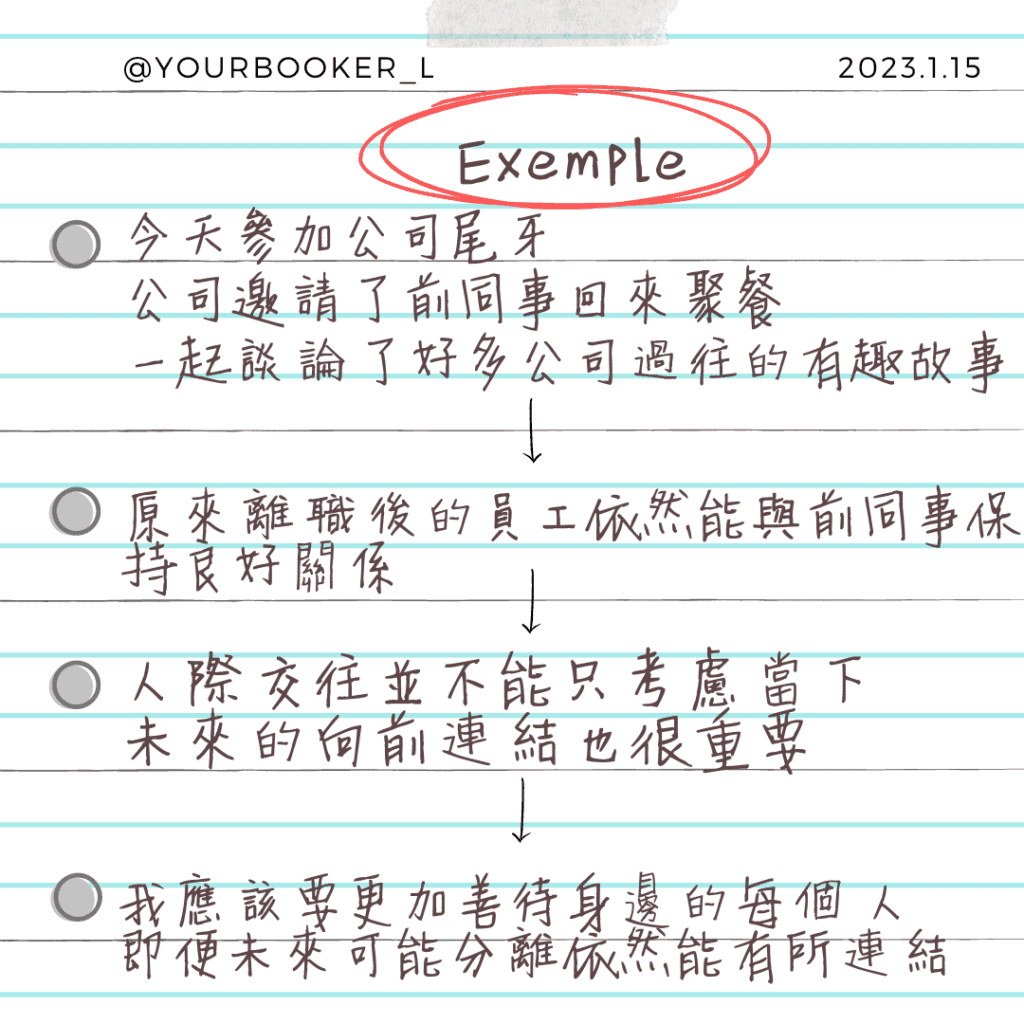 @YOURBOOKER_L
2023.1.15
Exemple
今天參加公司尾牙
公司邀請了前同事回來聚餐
一起談論了好多公司過往的有趣故事
原來離職後的員工依然能與前同事保
持良好關係
人際交往並不能只考慮當下
未來的向前連結也很重要
我應該要更加善待身邊的每個人
即便未來可能分離依然能有所連結